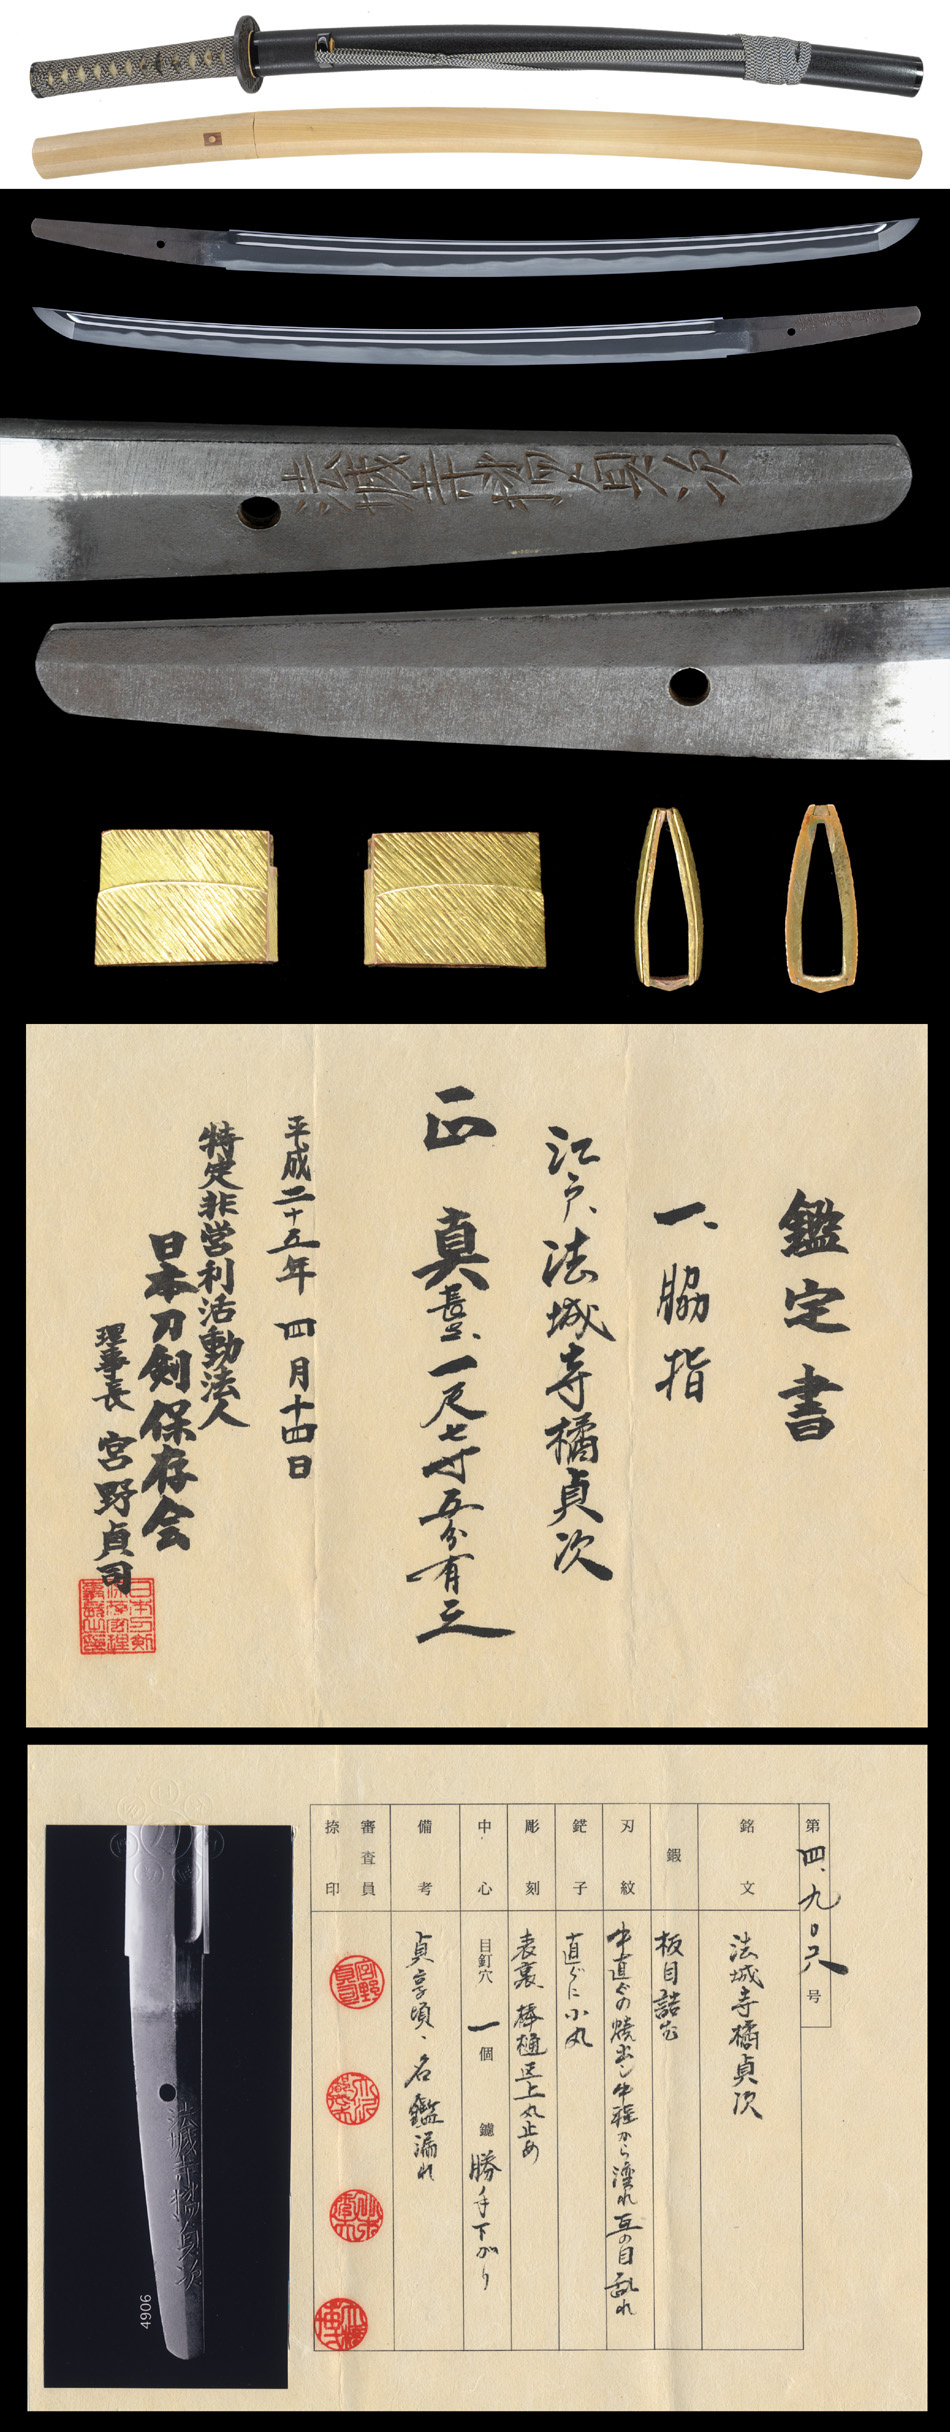 法城寺橘貞次
鑑定書
一、脇指
江戸、法城寺橘貞次
正真 長さ、一尺七寸五分有之
平成二十五年 四月十四日
特定非営利活動法人
日本刀剣保存会
理事長 宮野貞司
第四、九〇六号
銘文
法城寺橘貞次
鍜
板目詰む
刃紋
中直ぐの焼出し中程から湾れ互の目乱れ
鋩子
直ぐに小丸
彫刻
表裏棒樋区上丸止め
中心
目釘穴 一個 鑢 勝手下がり
備考
貞享頃、名鑑漏れ
審査員
捺印
法城寺橘貞次
4906